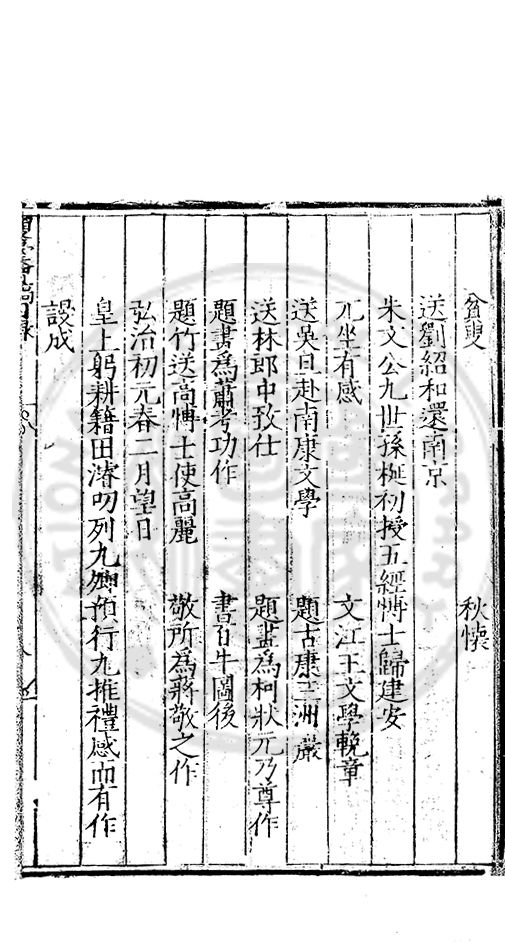 貧叟　秋懷
送劉紹和還南京
朱文公九世孫梴初授五經博士歸建安
兀坐有感　文江王文學輓章
送吳旦赴南康文學　題古康三洲巖
送林郎中致仕　題藍為柯狀元乃尊作
題畫為蕭考功作　書百牛圖後
題竹送高愽士使高麗　敬所為蔣敬之作
弘治初元春二月望日
皇上躬耕籍田濬叨列九卿預行九推禮感而有作
設成
稿目錄